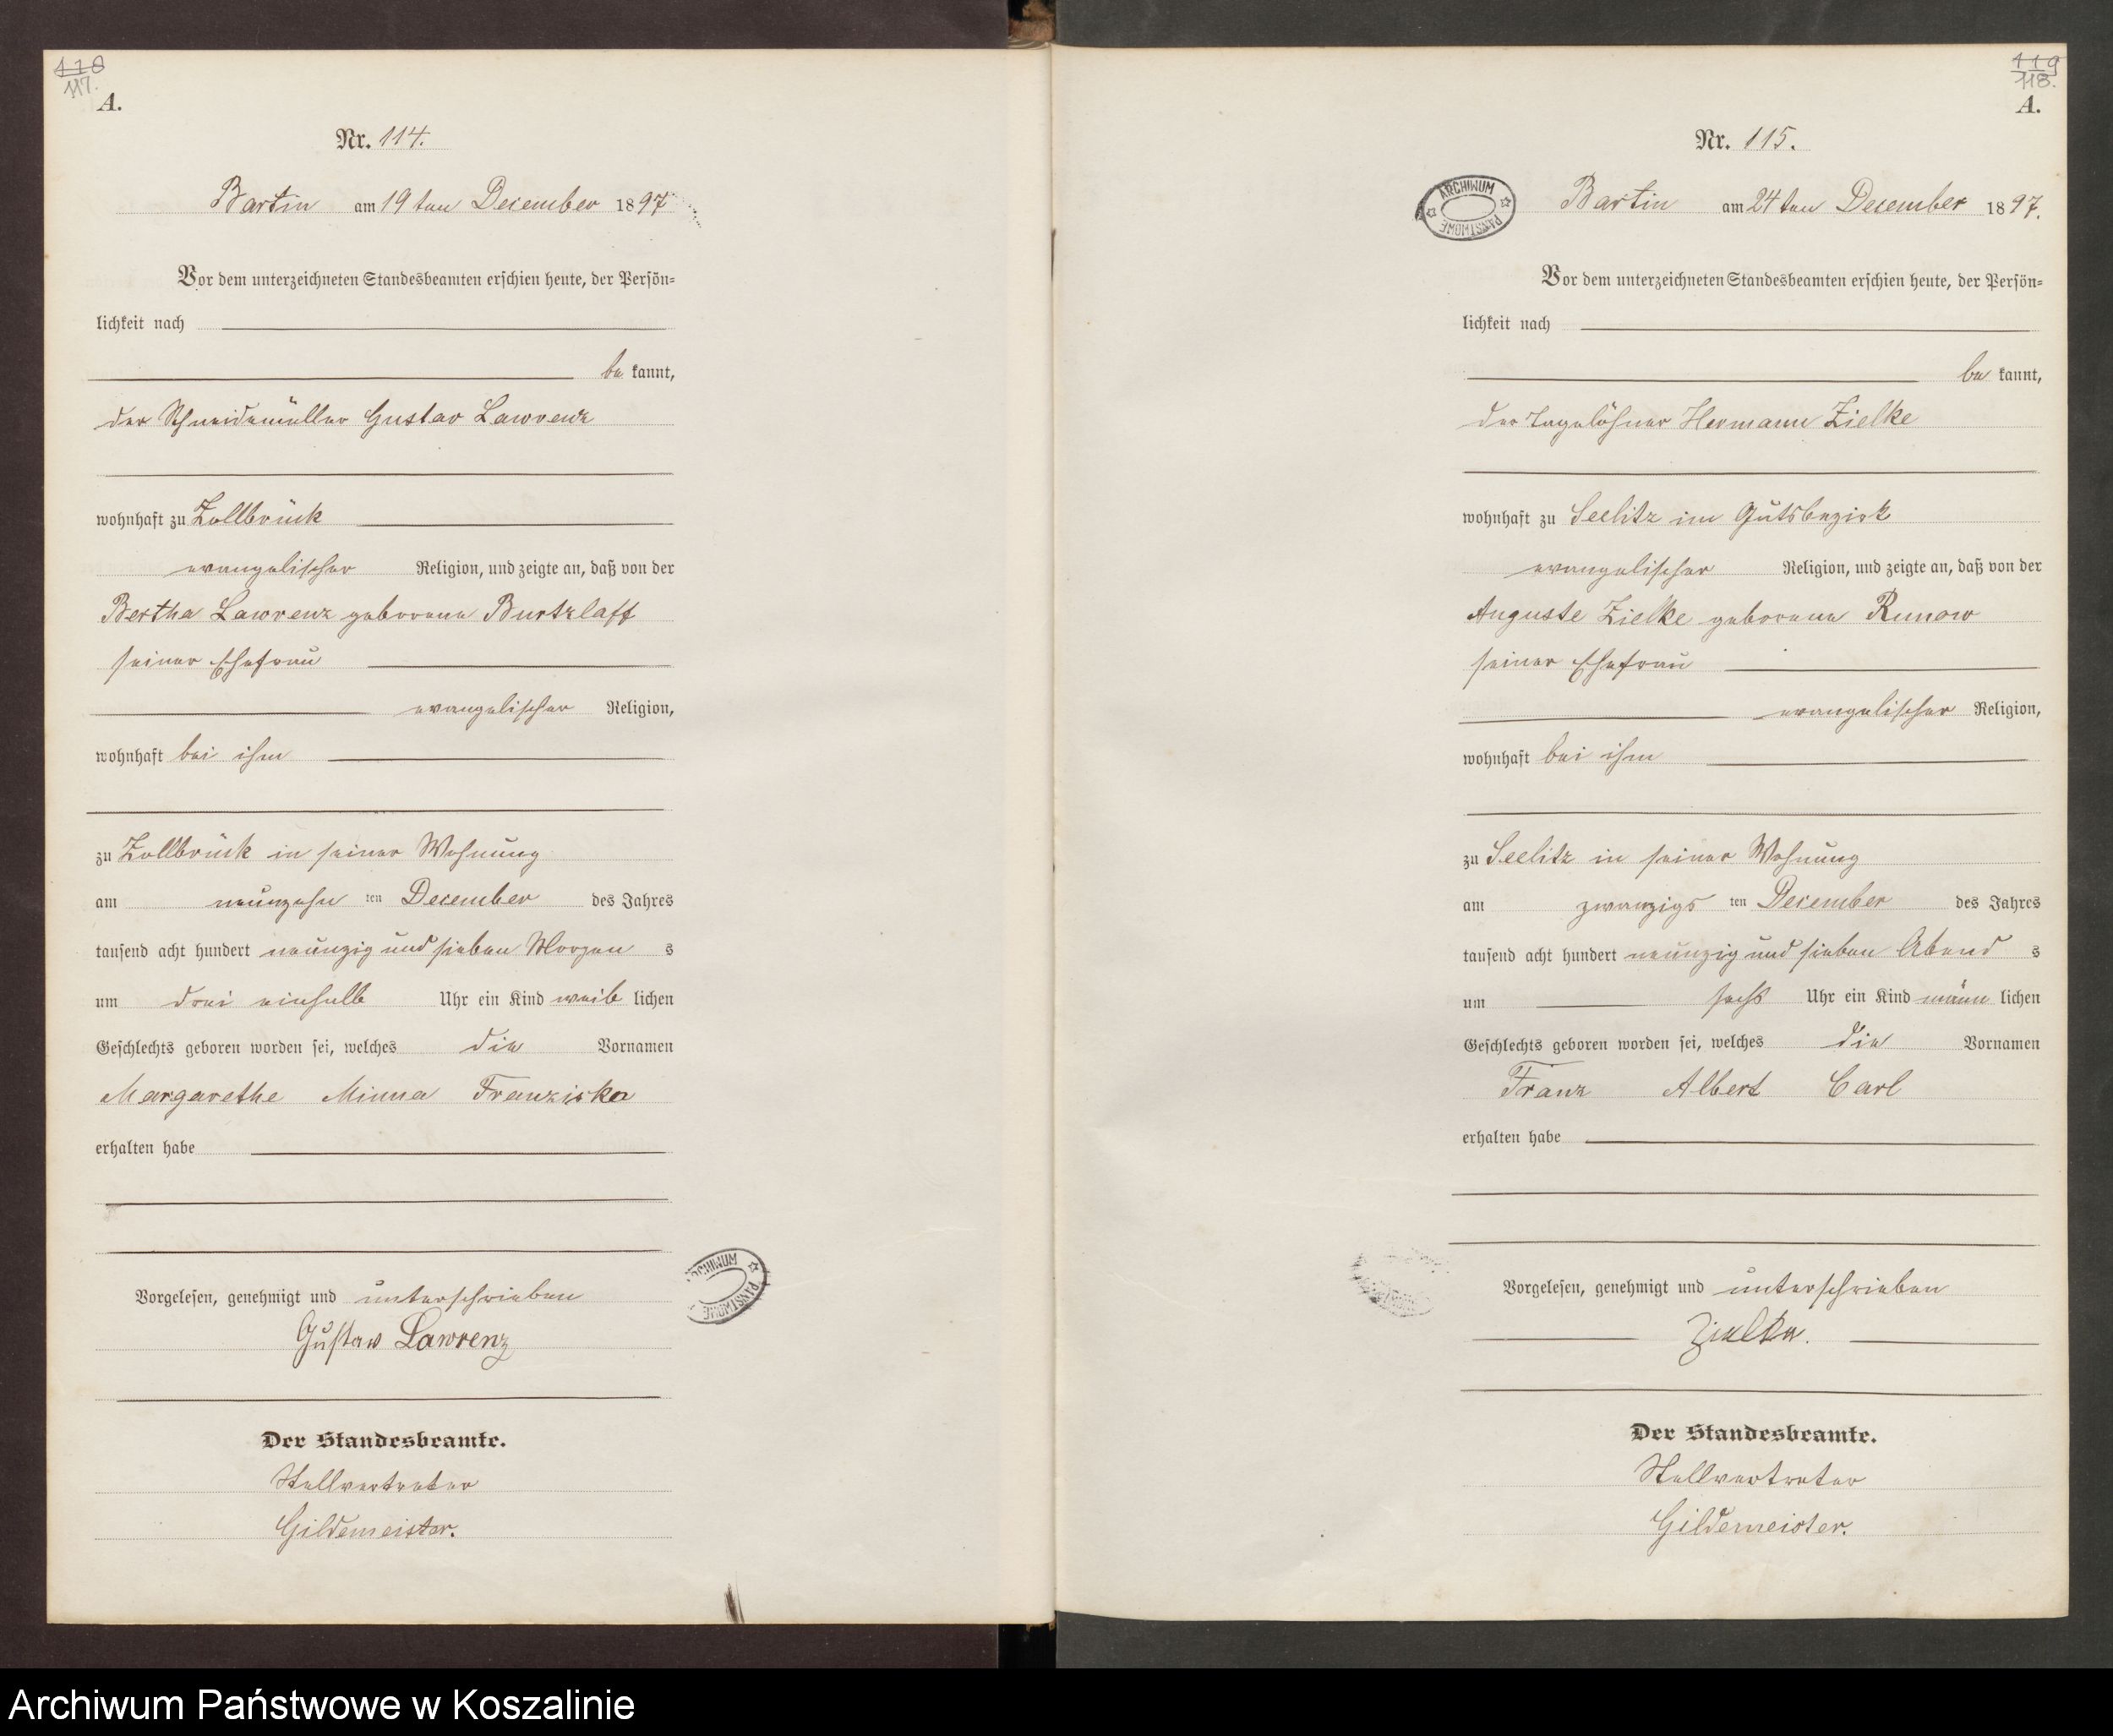 118
117.
A.
Nr. 114.
Bartin am 19ten December 1897
Vor dem unterzeichneten Standesbeamten erschien heute, der Persön=
lichkeit nach
be kannt,
der Schneidemüller Gustav Lawrenz
wohnhaft zu Zollbrück
evangelischer Religion, und zeigte an, daß von der
Bertha Lawrenz geborene Burtzlaff
seiner Ehefrau
evangelischer Religion,
wohnhaft bei ihm
zu Zollbrück in seiner Wohnung
am neunzehn ten December des Jahres
tausend acht hundert neunzig und sieben Morgen s
um drei einhalb Uhr ein Kind weib lichen
Geschlechts geboren worden sei, welches die Vornamen
Margarethe Minna Franziska
erhalten habe
Vorgelesen, genehmigt und unterschrieben
Gustaw Lawrenz
Der Standesbeamte.
Stellvertreter
Gildemeister.
ARCHIWUM PAŃSTWOWE
119
118.
A.
Nr. 115.
ARCHIWUM PAŃSTWOWE
Bartin am 24ten December 1897.
Vor dem unterzeichneten Standesbeamten erschien heute, der Persön=
lichkeit nach
be kannt,
der Tagelöhner Hermann Zielke
wohnhaft zu Seelitz im Gutsbezirk
evangelischer Religion, und zeigte an, daß von der
Auguste Zielke geborene Runow
seiner Ehefrau
evangelischer Religion,
wohnhaft bei ihm
zu Seelitz in seiner Wohnung
am zwanzigs ten December des Jahres
tausend acht hundert neunzig und sieben Abend s
um sechs Uhr ein Kind männ lichen
Geschlechts geboren worden sei, welches die Vornamen
Franz Albert Carl
erhalten habe
Vorgelesen, genehmigt und unterschrieben
Zielke.
Der Standesbeamte.
Stellvertreter
Gildemeister.
Archiwum Państwowe w Koszalinie